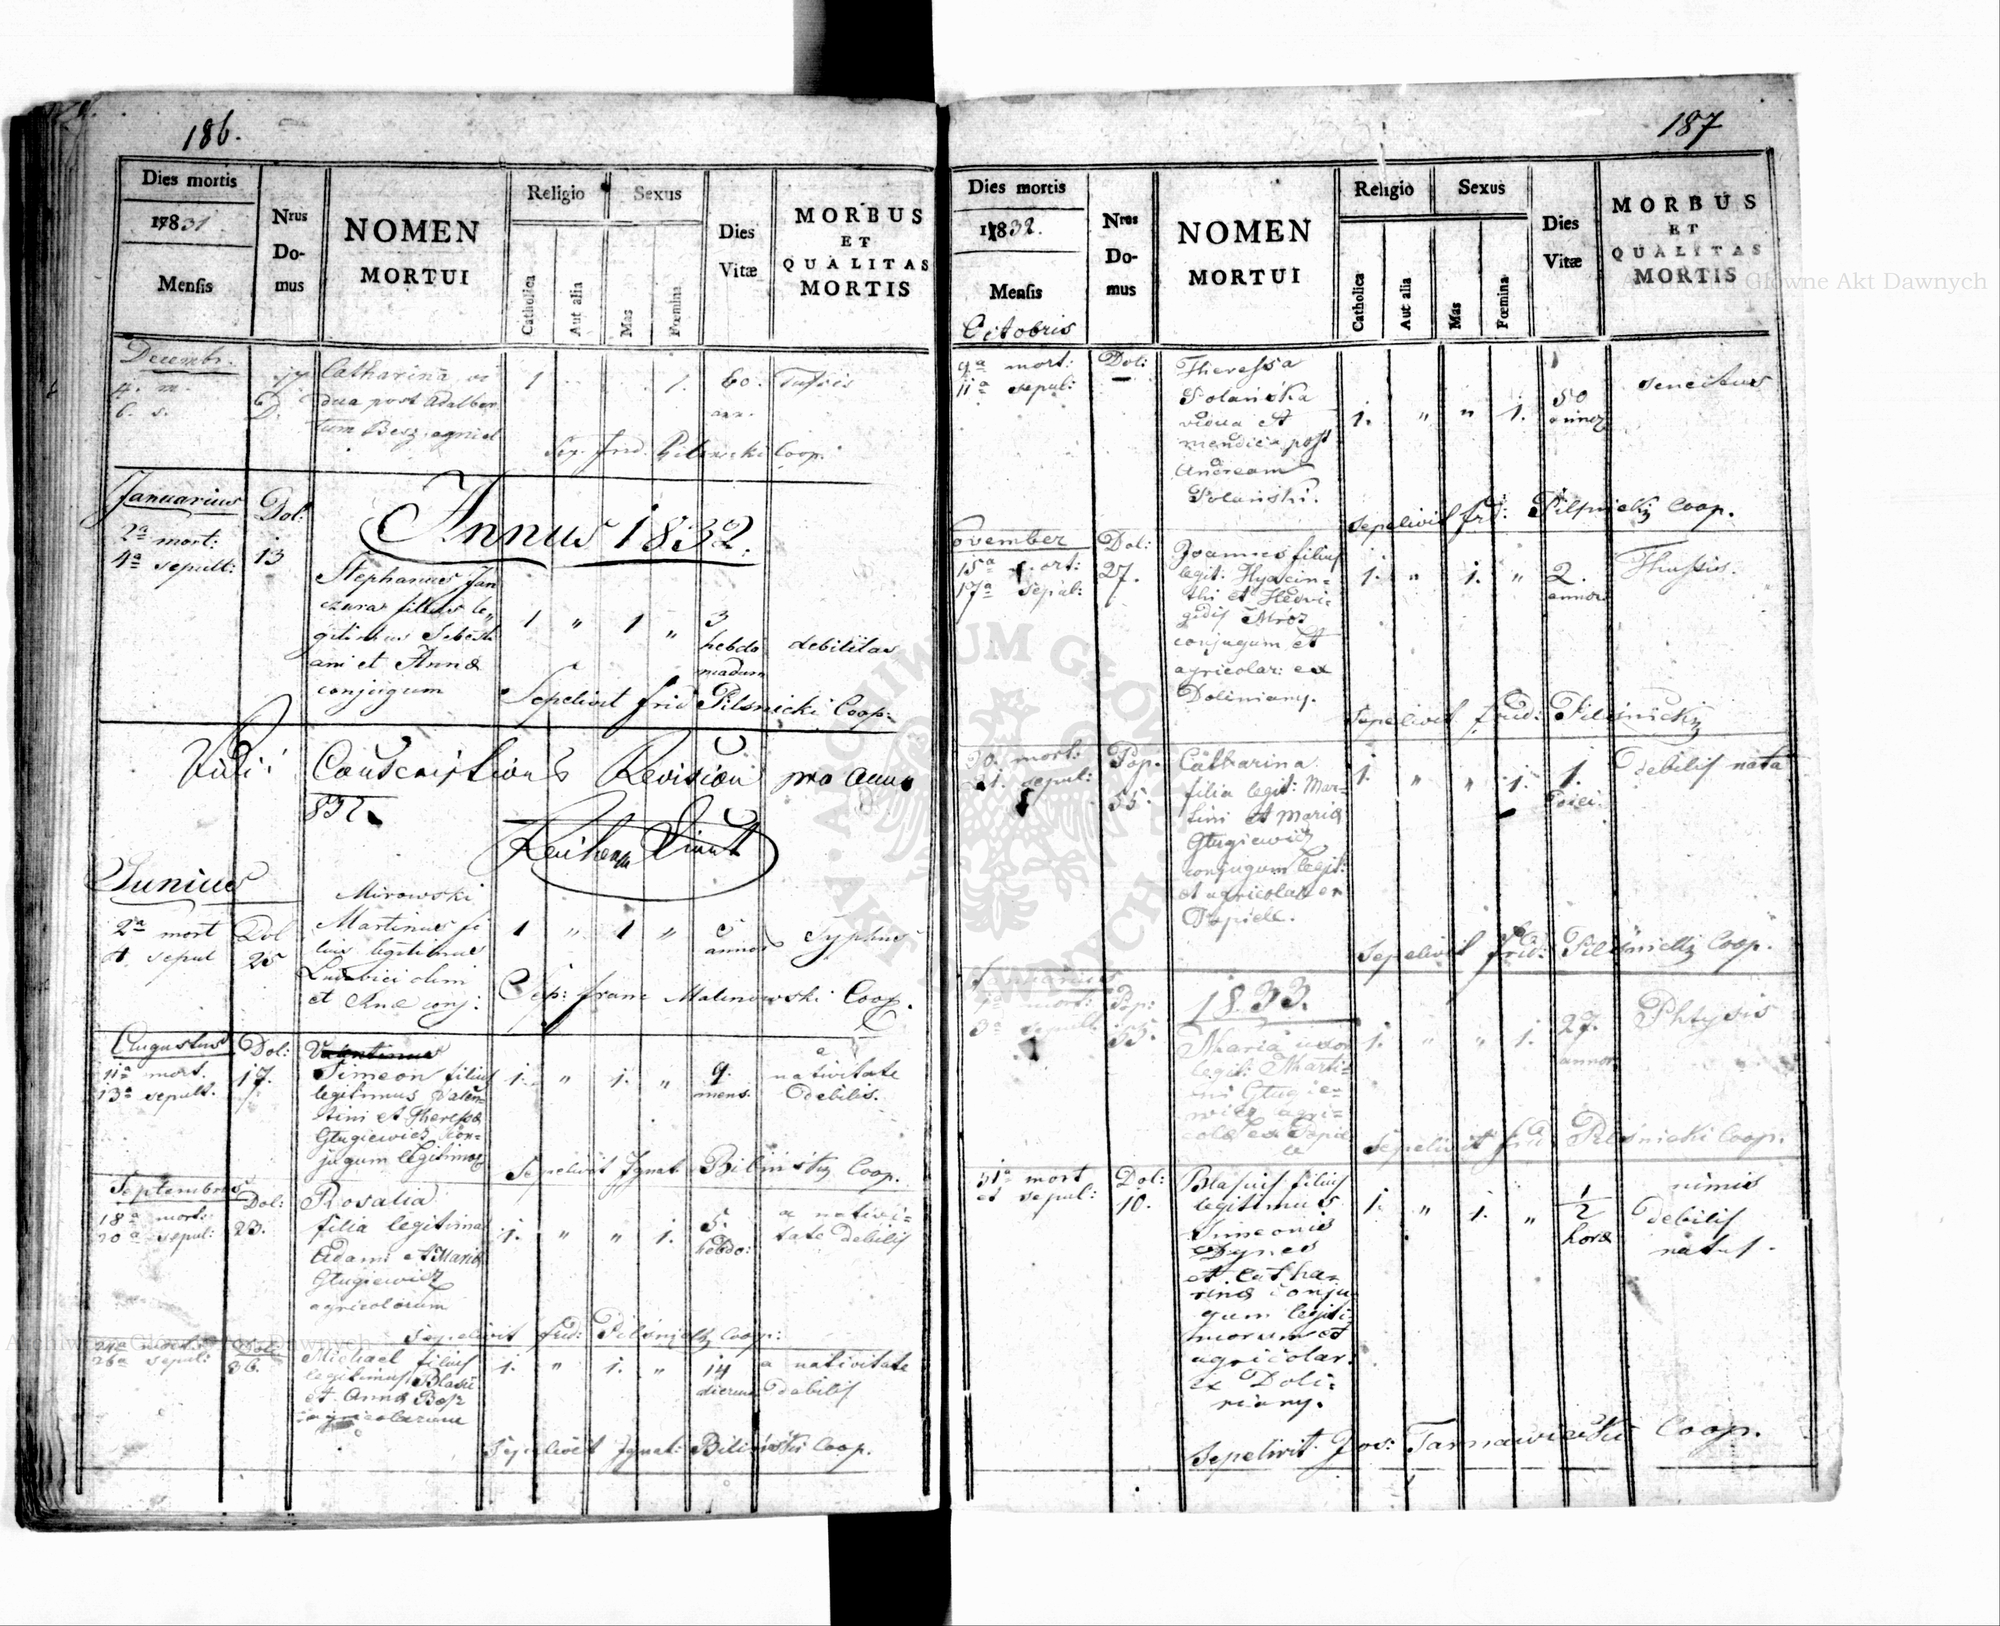 186.
Dies mortis
1831
Mensis
Nrus
Do-
mus
NOMEN
MORTUI
Religio
Sexus
Catholica
Aut alia
Mas
Fœmina
Dies
Vitæ
MORBUS
ET
QUALITAS
MORTIS
Decembr.
4. m.
6. s.
17
D.
Catharina vi
dua post Adalber
tum Besz agricol
1
1.
60.
ann.
Tussis
Sep. frid. Pilsnicki Coop.
Januarius
Dol:
Annus 1832.
2a mort:
4a sepult:
13
Stephanus Jan
czura filius le„
gitimus Sebasti
ani et Annæ
conjugum
1 „ 1 „
3
hebdo
madum
debilitas
Sepelivit frid Pilsnicki Coop:
Vidi: Conscriptions Revision pro anno
832.
Junius
Mirowski
2a mort
4. sepul
Dol
25
Martinus fi
lius legitimus
Ludovici olim
et Anæ conj:
1 „ 1 „
5
annos
Typhus
Sep: franc Malinowski Coop.
Augustus
11a mort.
13a sepult.
Dol:
17.
Valentinus
Simeon filius
legitimus Valen-
tini et Theresæ
Gługiewicz con-
jugum legitimor
1. „ 1. „
9.
mens.
a
nativitate
debilis.
Sepelivit Ignat Biliński Coop.
Septembris
18a mort:
20a sepul:
Dol:
23.
Rosalia
filia legitima
Adami et Mariæ
Gługiewicz
agricolorum
1. „ „ 1.
5.
hebdo:
a nativi-
tate debilis
Sepelivit frid: Pilśnicki Coop:
24a mort:
26a sepul:
Dol:
36.
Michael filius
legitimus Blasii
et Annæ Besz
agricolarum
1. „ 1. „
14
dierum
a nativitate
debilis
Sepelivit Ignat: Biliński Coop.
187
Dies mortis
1832.
Mensis
Nrus
Do-
mus
NOMEN
MORTUI
Religio
Sexus
Catholica
Aut alia
Mas
Fœmina
Dies
Vitæ
MORBUS
ET
QUALITAS
MORTIS
Octobris
9a mort:
11a sepul:
Dol:
—
Theressa
Polańska
vidua et
mendica post
Andream
Polański.
1. „ „ 1.
50
annor
senectus
Sepelivit frid: Pilsnicki Coop.
ovember
15a mort:
17a sepul:
Dol:
27.
Joannes filius
legit: Hyacin-
thi et Hedvi-
gidis Mróz
conjugum et
agricolar: ex
Doliniany.
1. „ 1. „
2.
annor
Thussis.
Sepelivit frid: Pilśnicki
30. mort:
et. sepul:
Pop.
55.
Catharina
filia legit: Mar-
tini et Mariæ
Gługiewicz
conjugum legit:
et agricolar ex
Popiele.
1. „ „ 1.
1.
debilis nata
Sepelivit frid: Pilśnicki Coop.
Januarius
1833.
1a mort:
3a sepult
Pop:
55.
Maria uxor
legit: Marti-
ni Gługie-
wicz agri-
colæ ex Popie
le
1. „ „ 1.
27.
annor
Phtysis
Sepelivit frid Pilśnicki Coop.
31a mort
et sepul:
Dol:
10.
Blasius filius
legitimus
Simeonis
Dynes
et Catha
rinæ conju
gum legiti-
morum et
agricolar.
ex Doli-
niany.
1. „ 1. „
1/2
horæ
nimis
debilis
natus.
Sepelivit Jos: Tarnawiecki Coop.
Archiwum Główne Akt Dawnych
Archiwum Główne Akt Dawnych
ARCHIWUM GŁÓWNE AKT DAWNYCH